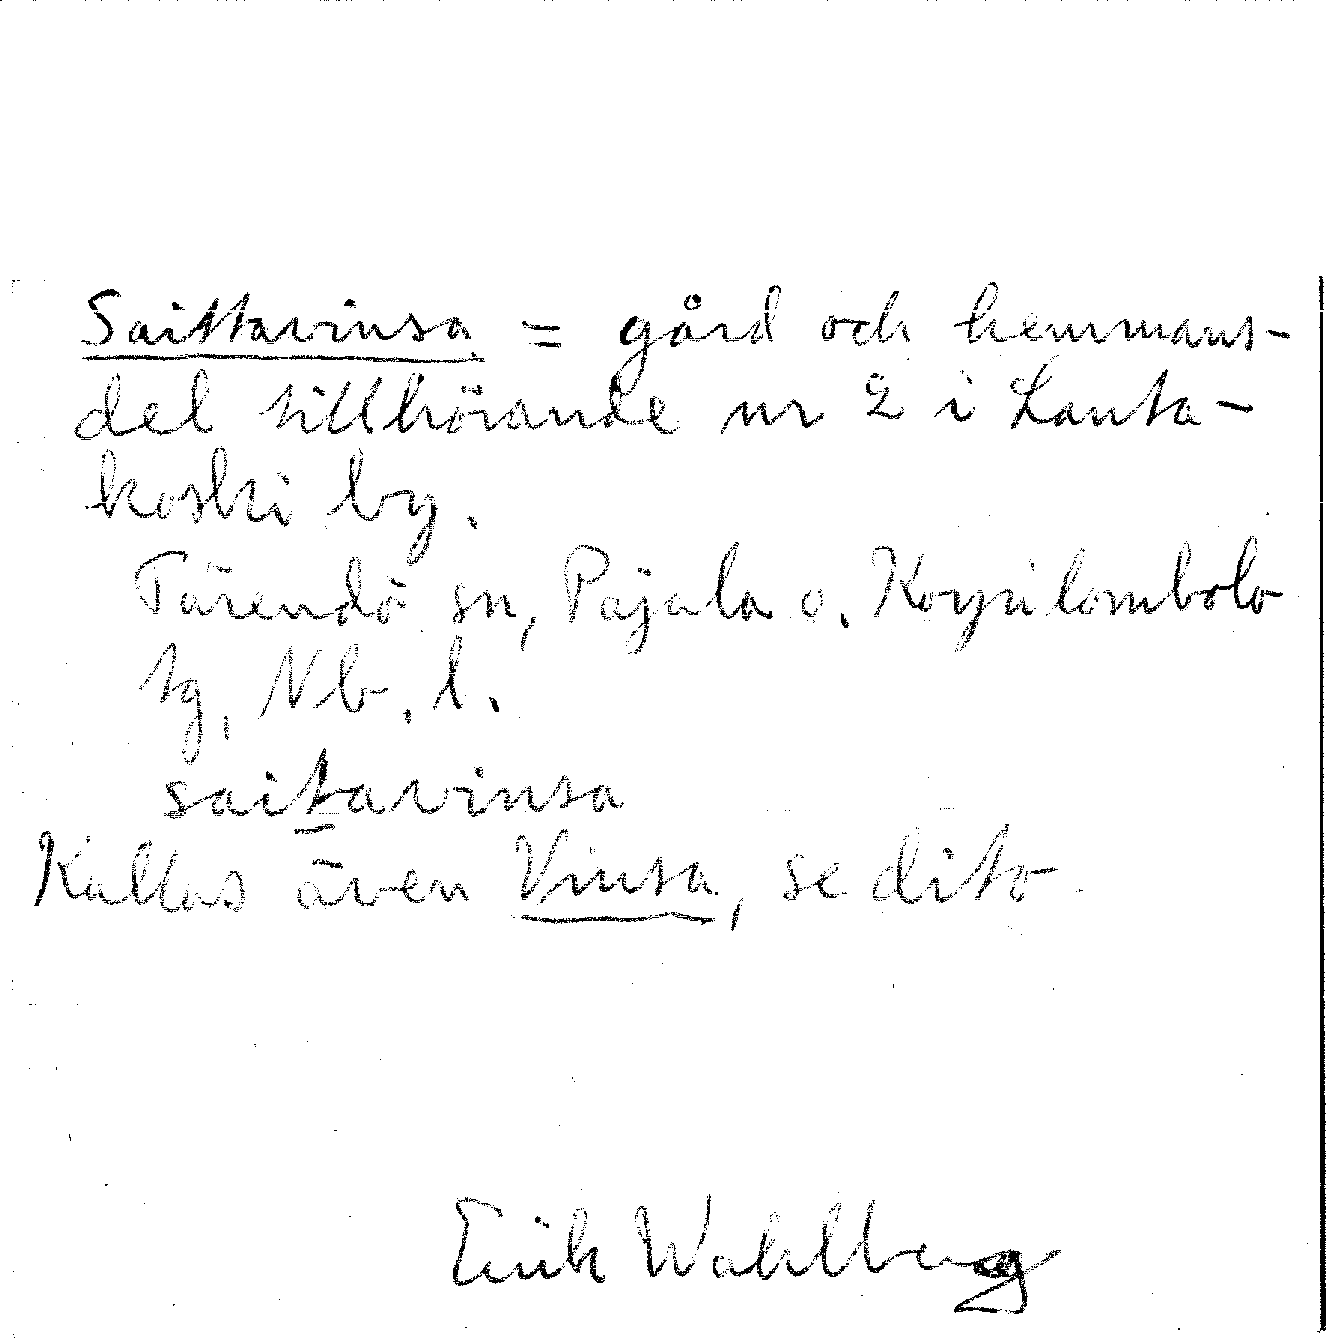 Saittavinsa = gård och hemmans-
del tillhörande nr 2 i Lanta-
koski by.
Tärendö sn, Pajala o. Korpilombolo
tg, Nb. l.
saitavinsa
Kallas även Vinsa, se dito
Erik Wahlberg